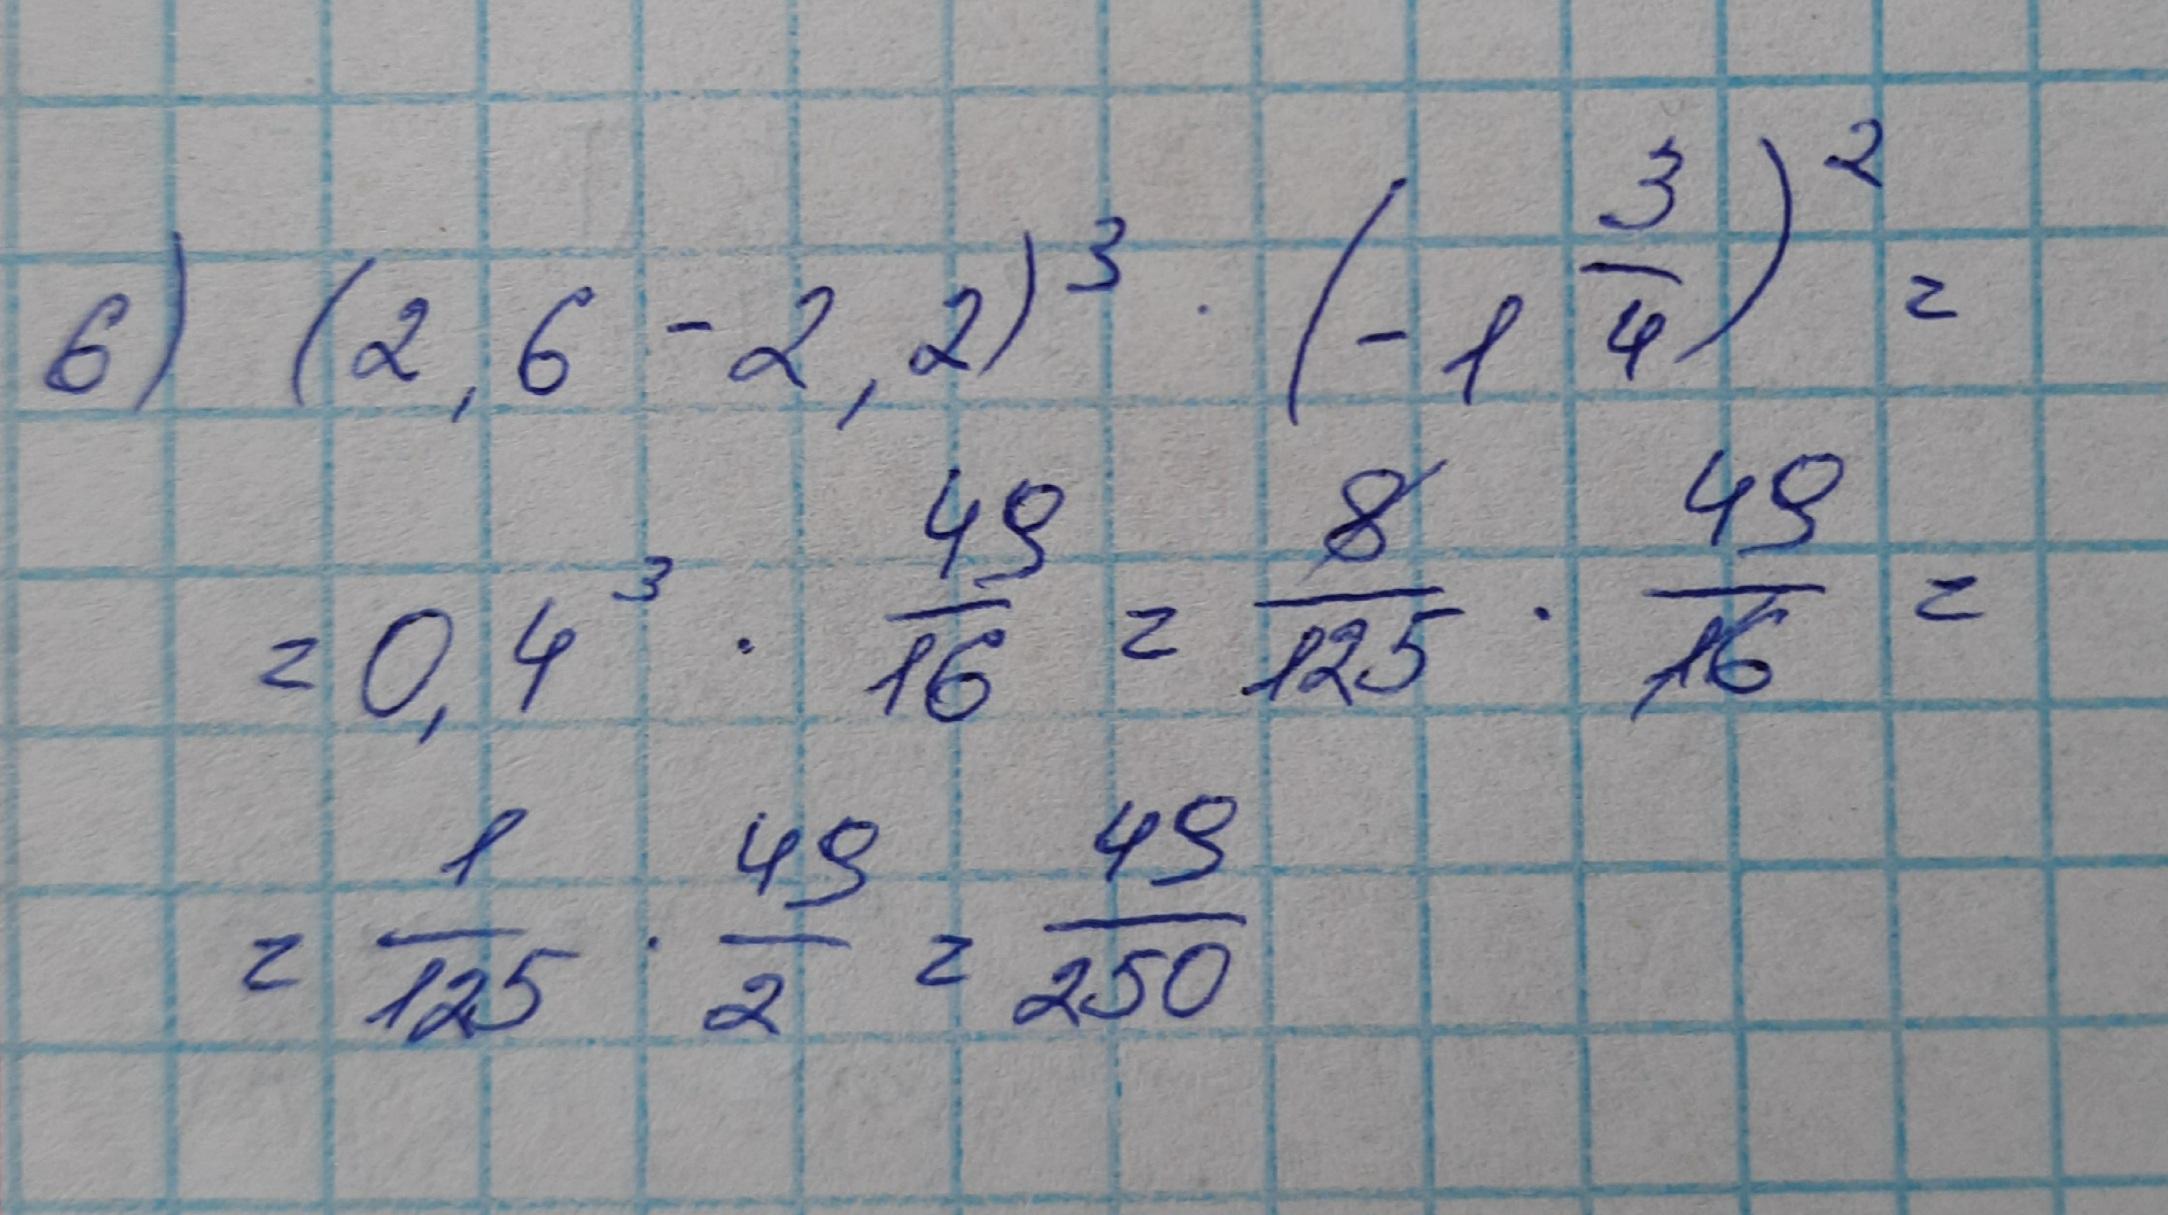 6) (2,6 - 2,2)³ · (-1 3/4)² =
= 0,4³ · 49/16 = 8/125 · 49/16 =
= 1/125 · 49/2 = 49/250